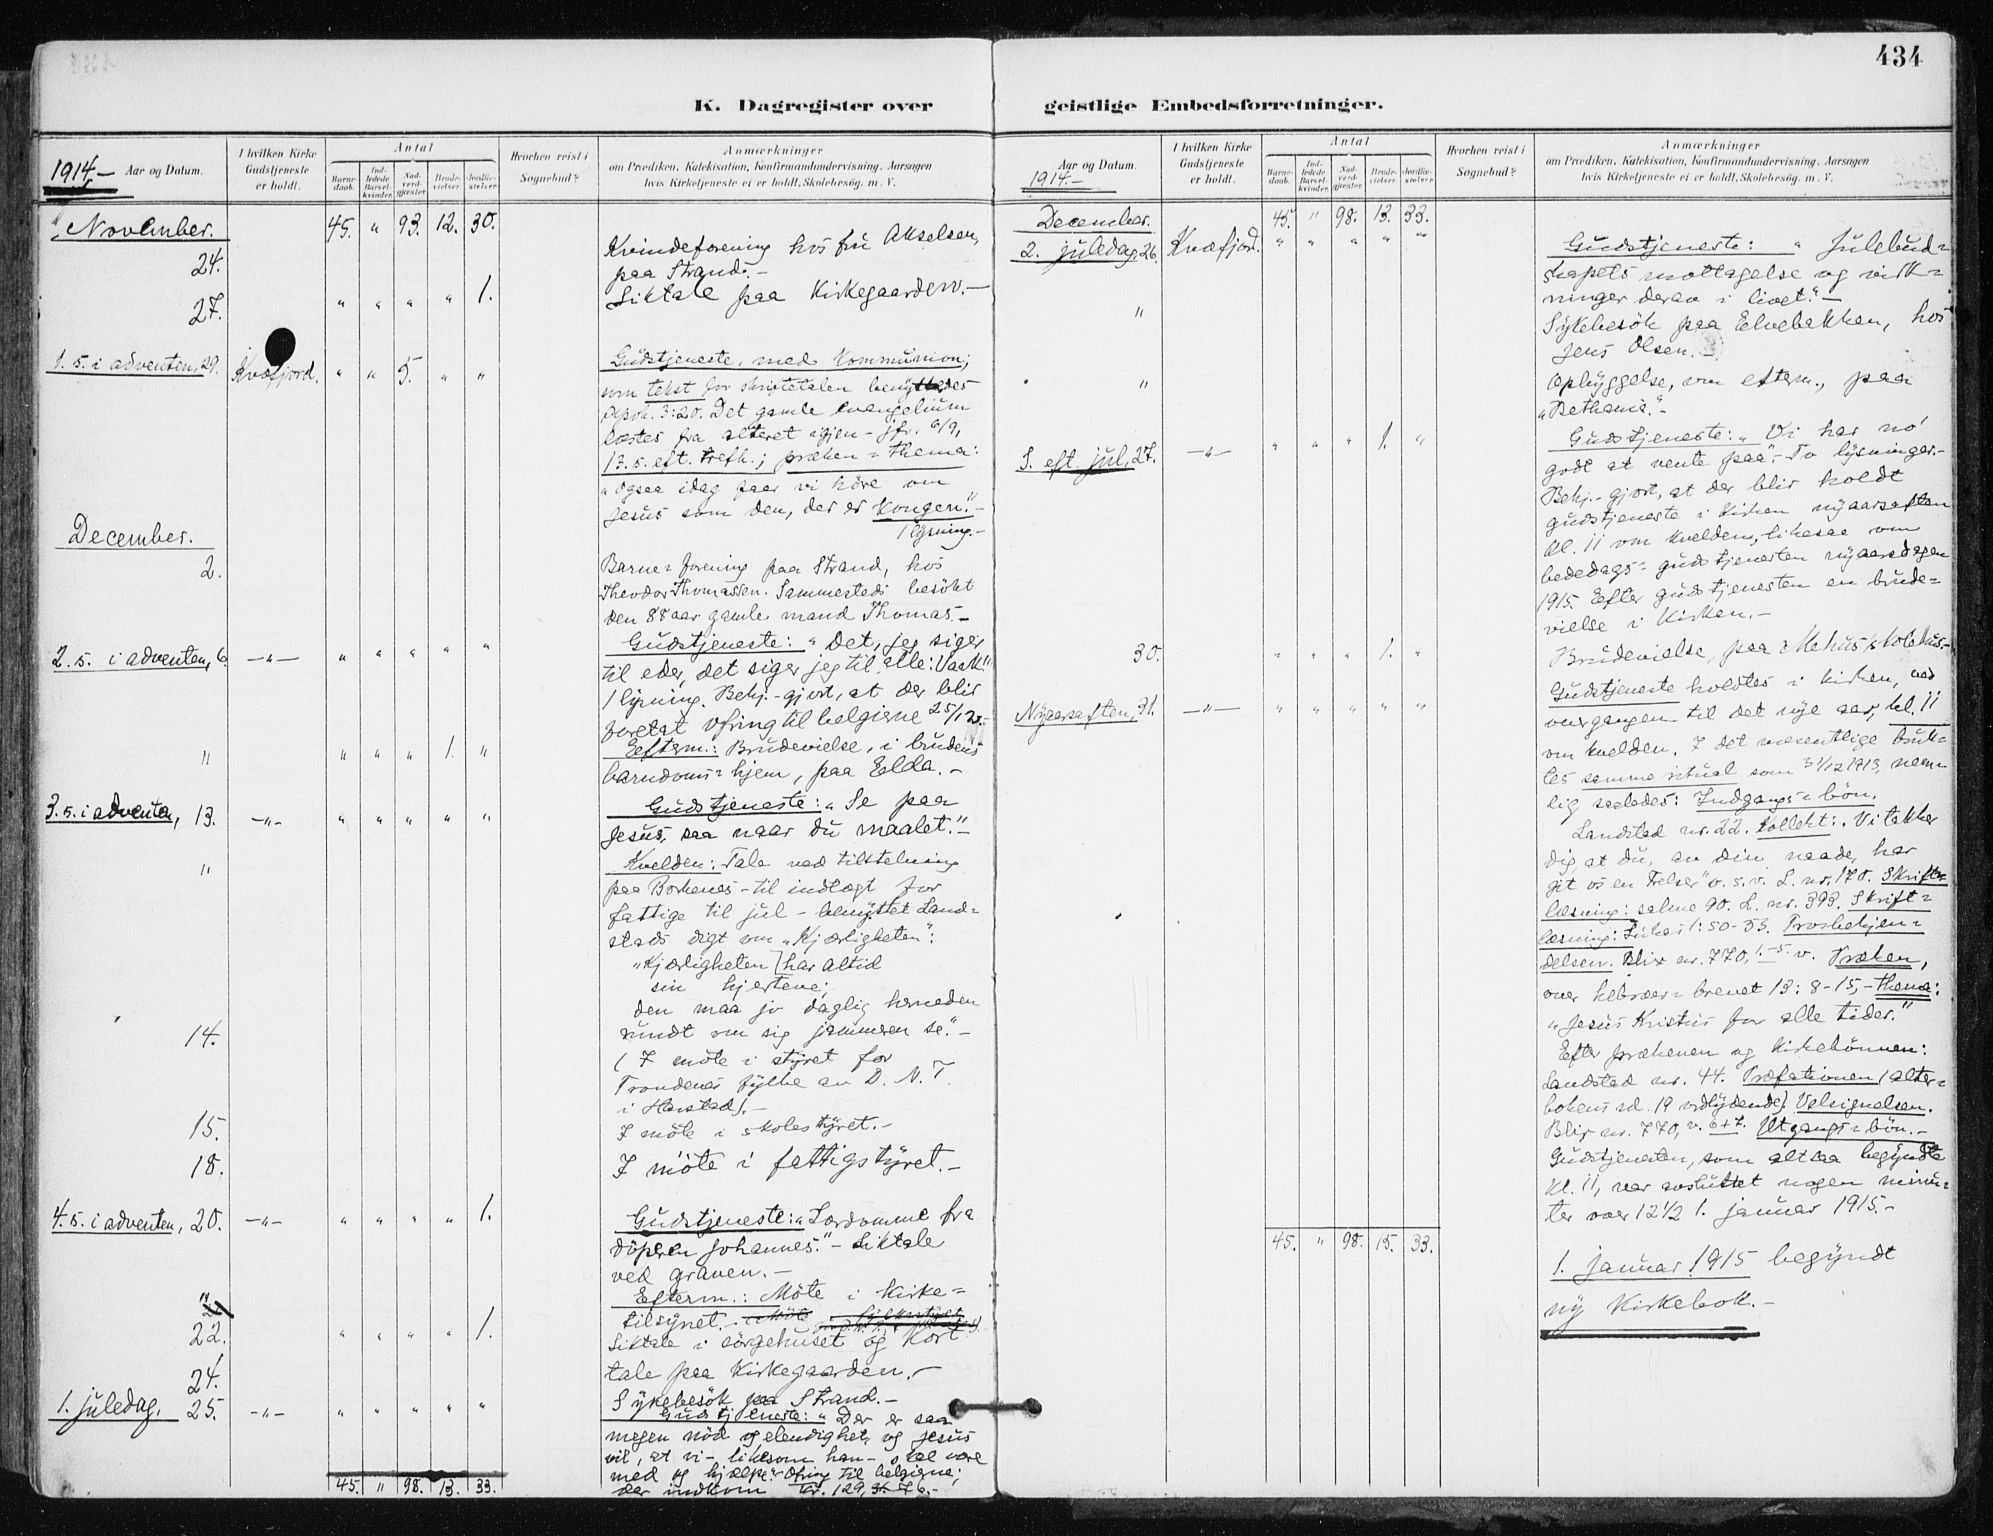 434
K. Dagregister over
geistlige Embedsforretninger.
1914.— Aar og Datum.
I hvilken Kirke Gudstjeneste er holdt.
Antal
Barnedaab.
Indledede Barselkvinder.
Nadverdgjester.
Brudevielser.
Jordfæstelser.
Hvorhen reist i Sognebud?
Anmærkninger
om Prædiken, Katekisation, Konfirmandundervisning, Aarsagen
hvis Kirketjeneste ei er holdt, Skolebesøg. m. V.
November. 45. " 93. 12. 30.
24. Kvindeforening hos fru Akselsen,
paa Strand.—
27. " " " " 1. Liktale paa kirkegaarden.—
1. s. i adventen, 29. Kvæfjord. " " 5. " " Gudstjeneste, med kommunion;
som tekst for skriftetalen benyttedes
Apok. 3:20. Det gamle evangelium
læstes fra alteret igjen - jfr. 6/9,
13. s. eft. trefh.; præken = thema:
"Ogsaa idag faar vi höre om
Jesus som den, der er Kongen."—
1 lysning.—
December.
2. Barne=forening paa Strand, hos
Theodor Thomassen. Sammesteds besökt
den 88 aar gamle mand Thomas.—
2. s. i adventen, 6. —"— " " " " " Gudstjeneste: "Det, jeg siger
til eder, det siger jeg til alle: Vaak!"
1 lysning. Bekj.-gjort, at der blir
foretat ofring til belgierne 25/12.—
" " " " 1. " Efterm.: Brudevielse, i brudens
barndoms=hjem, paa Elda.—
3. s. i adventen, 13. —"— " " " " " Gudstjeneste: "Se paa
Jesus, saa naar du maalet."—
" Kvelden: Tale ved tilstelning
paa Borkenes - til indtægt for
fattige til jul - benyttet Land=
stads digt om "Kjærligheten":
"Kjærligheten har altid
sin hjertene;
den maa jo daglig herneden
rundt om sig jammeren se."—
14. (I möte i styret for
Trondenes fylke av D. N. T.
i Harstad).—
15. I möte i skolestyret.—
18. I möte i fattigstyret.—
4. s. i adventen, 20. —"— " " " " 1. Gudstjeneste: "Lærdomme fra
döperen Johannes."— Liktale
ved graven.—
" Efterm.: Möte i kirke=
tilsynet.—
22. " " " " 1. Liktale i sörgehuset og kort
tale paa kirkegaarden.—
24. Sykebesök paa Strand.—
1. juledag, 25. —"— " " " " " Gudstjeneste: "Der er saa
megen nöd og elendighet, og Jesus
vil, at vi - likesom han - skal være
med og hjælpe." Ofring til belgierne;
der indkom kr. 129, 76.—
45. " 98. 13. 33.
Aar og Datum.
1914.—
I hvilken Kirke Gudstjeneste er holdt.
Antal
Barnedaab.
Indledede Barselkvinder.
Nadverdgjester.
Brudevielser.
Jordfæstelser.
Hvorhen reist i Sognebud?
Anmærkninger
om Prædiken, Katekisation, Konfirmandundervisning. Aarsagen
hvis Kirketjeneste ei er holdt, Skolebesøg. m. V.
December. 45. " 98. 13. 33.
2. juledag, 26. Kvæfjord. " " " " " Gudstjeneste: "Julebud=
skapets mottagelse og virk=
ninger derav i livet."—
" Sykebesök paa Elvebakken, hos
Jens Olsen.—
" Opbyggelse, om efterm., paa
"Bethania."—
S. eft. jul, 27. —"— " " " 1. " Gudstjeneste: "Vi har no'
godt at vente paa".— To lysninger.—
Bekj.-gjort, at der blir holdt
gudstjeneste i kirken nyaarsaften
kl. 11 om kvelden, likesaa om
bededags=gudstjenesten nyaarsdagen
1915. Efter gudstjenesten en brude=
vielse i kirken.—
30. " " " 1. " Brudevielse, paa Mehus skolehus.—
Nyaarsaften, 31. —"— " " " " " Gudstjeneste holdtes i kirken, ved
overgangen til det nye aar, kl. 11
om kvelden. I det væsentlige bruk=
tes samme ritual som 31/12 1913, nem=
lig saaledes: Indgangs=bön.
Landstad nr. 22. Kollekt: "Vi takker
dig, at du, av din naade, har
git os en Frelser" o. s. v. L. nr. 170. Skrift=
læsning: salme 90. L. nr. 393. Skrift=
læsning: Lukas 1:50-53. Trosbekjen=
delsen. Blix nr. 770, 1.-5. v. Præken,
over hebræer=brevet 13: 8-15, — thema:
"Jesus Kristus for alle tider."
Efter prækenen og kirkebönnen:
Landstad nr. 44. Præfationen (alter=
bokens sd. 19 ordlydende). Velsignelsen.
Blix nr. 770, v. 6+7. Utgangs=bön.—
Gudstjenesten, som altsaa begyndte
kl. 11, var avsluttet nogen minut=
ter over 12 1/2 1. januar 1915.—
45. " 98. 15. 33.
1. januar 1915 begyndt
ny kirkebok.—